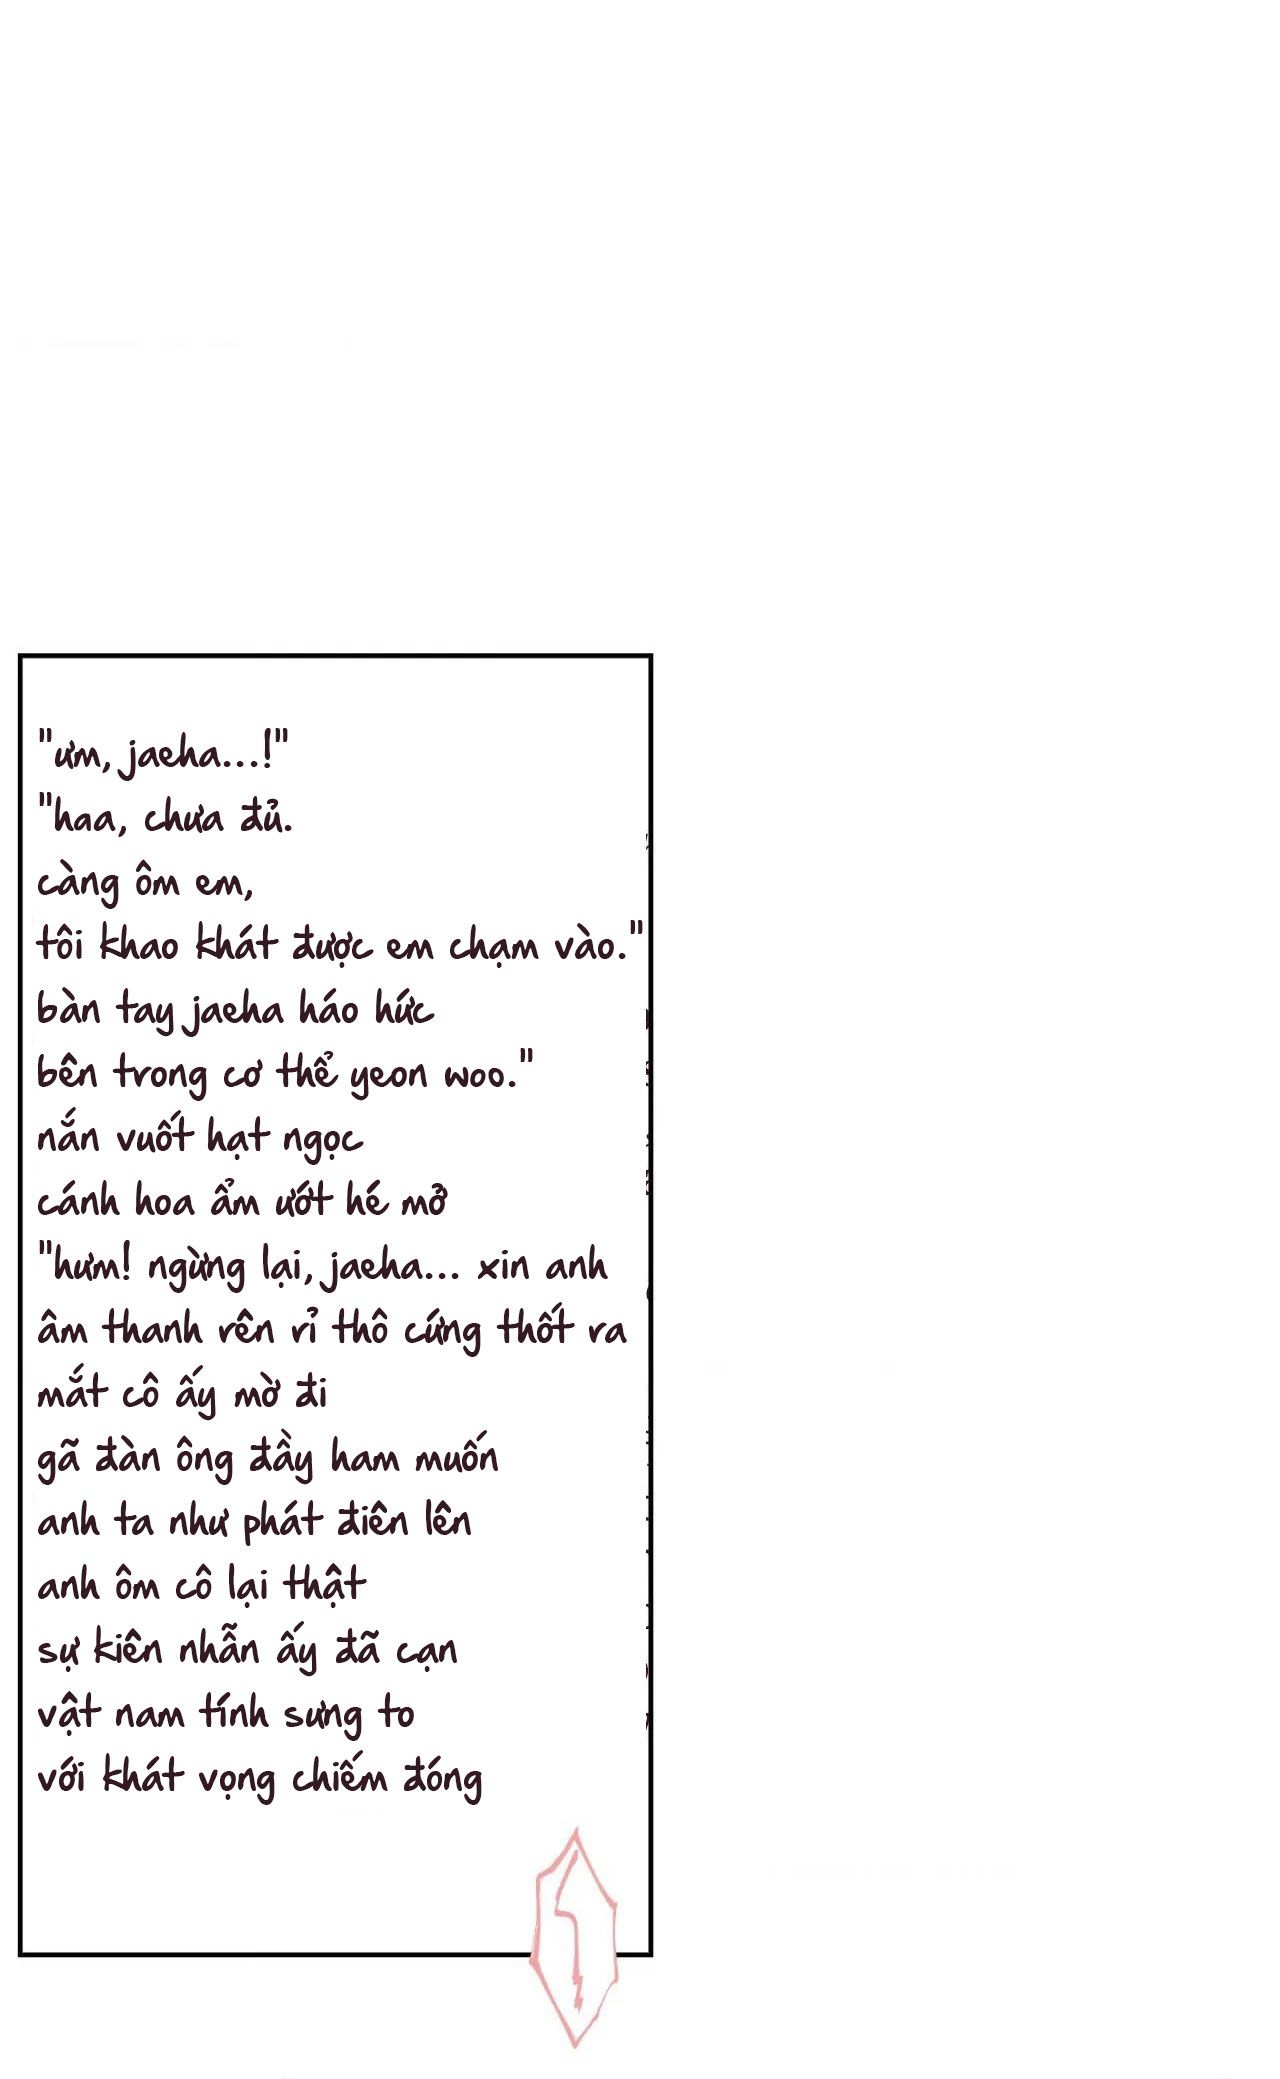 "ưm, jaeha...!"
"haa, chưa đủ.
càng ôm em,
tôi khao khát được em chạm vào."
bàn tay jaeha háo hức
bên trong cơ thể yeon woo."
nắn vuốt hạt ngọc
cánh hoa ẩm ướt hé mở
"hưm! ngừng lại, jaeha... xin anh
âm thanh rên rỉ thô cứng thốt ra
mắt cô ấy mờ đi
gã đàn ông đầy ham muốn
anh ta như phát điên lên
anh ôm cô lại thật
sự kiên nhẫn ấy đã cạn
vật nam tính sưng to
với khát vọng chiếm đóng